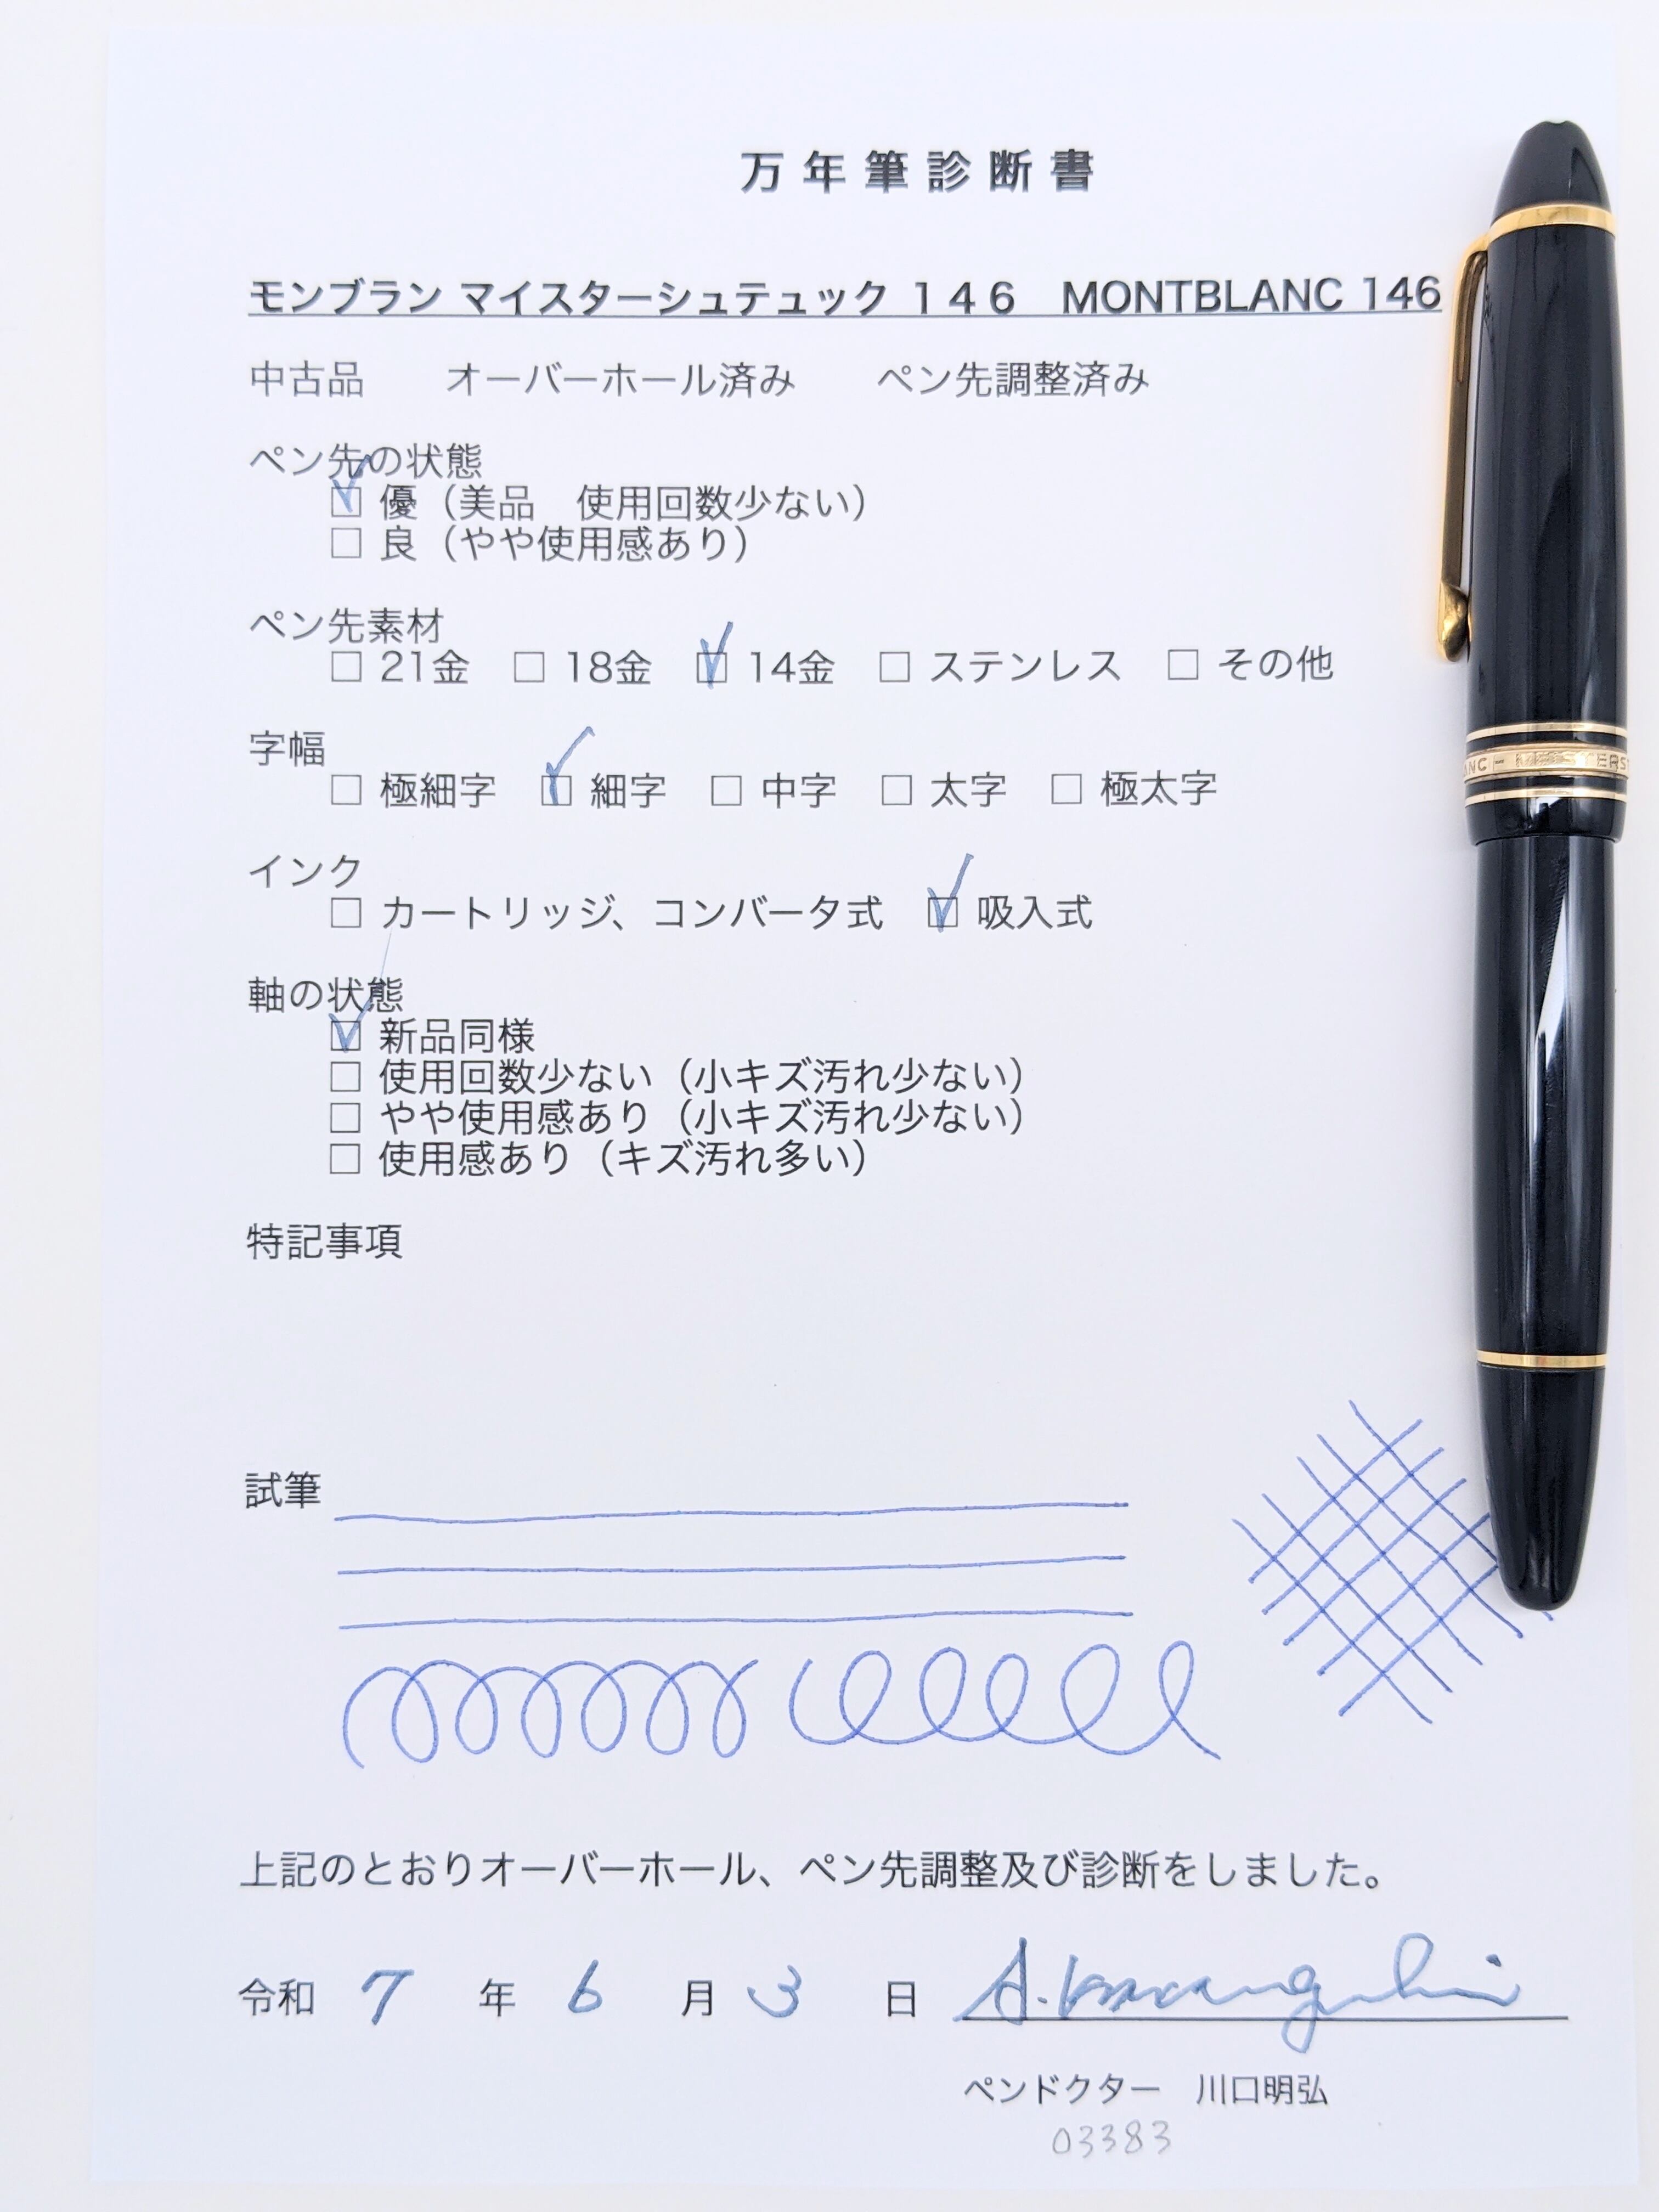 万年筆診断書
モンブラン マイスターシュテュック 146　MONTBLANC 146
中古品　　オーバーホール済み　　ペン先調整済み
ペン先の状態
☑ 優（美品　使用回数少ない）
□ 良（やや使用感あり）
ペン先素材
□ 21金　□ 18金　☑ 14金　□ ステンレス　□ その他
字幅
□ 極細字　☑ 細字　□ 中字　□ 太字　□ 極太字
インク
□ カートリッジ、コンバータ式　☑ 吸入式
軸の状態
☑ 新品同様
□ 使用回数少ない（小キズ汚れ少ない）
□ やや使用感あり（小キズ汚れ少ない）
□ 使用感あり（キズ汚れ多い）
特記事項
試筆
上記のとおりオーバーホール、ペン先調整及び診断をしました。
令和 7 年 6 月 3 日 A.Kawaguchi
ペンドクター　川口明弘
03383